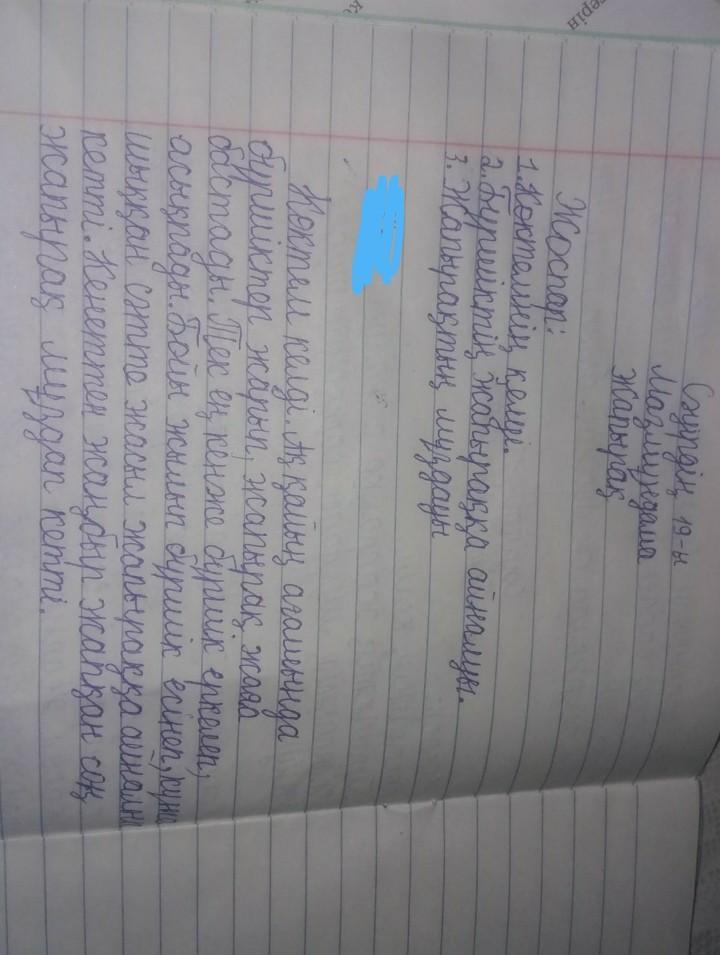 Сәуірдің 19-ы
Мазмұндама
Жапырақ
Жоспар:
1. Көктемнің келуі.
2. Бүршіктің жапыраққа айналуы.
3. Жапырақтың мұздауы
Көктем келді. Ақ қайың ағашында
бүршіктер жарып, жапырақ жая
бастады. Тек ең кенже бүршік еркелеп,
асықпады. Бойы жылып бүршік есінеп, күн
шыққан сәтте жасыл жапыраққа айналып
кетті. Кенеттен жаңбыр жапқан соң,
жапырақ мұздап кетті.